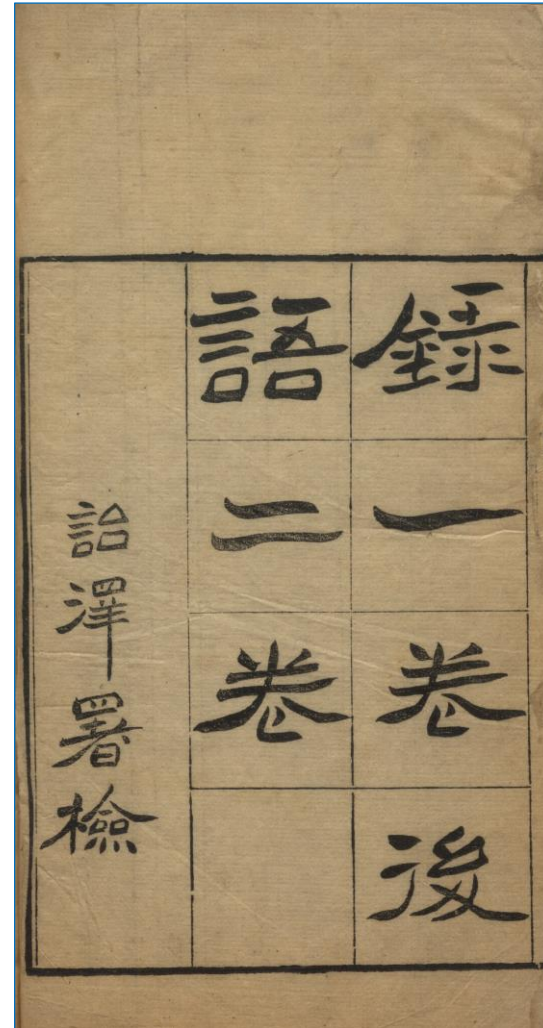 錄一卷後
語二卷
詒澤署檢